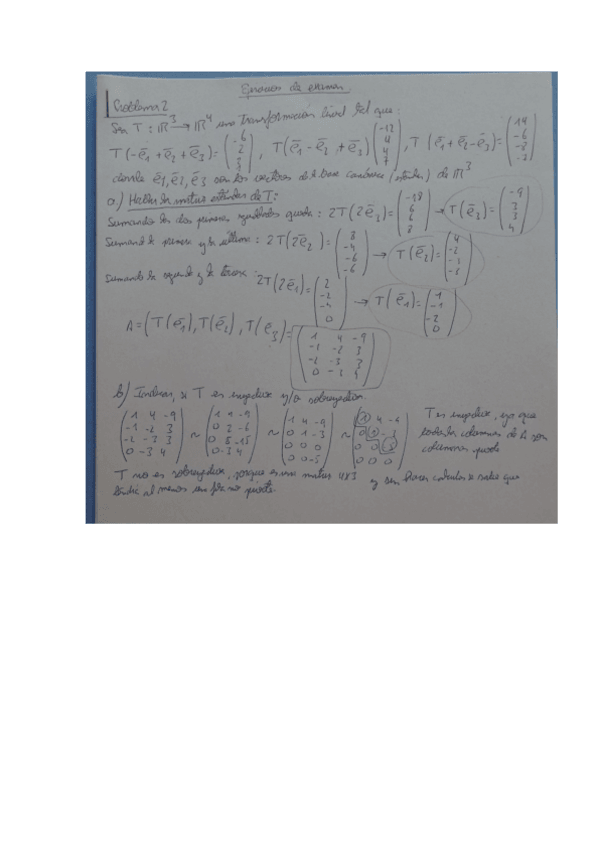 Ejercicios de examen
Problema 2
Sea T: ℝ³ → ℝ⁴ una transformación lineal tal que:
T(-ē1 + ē2 + ē3) = (-6 2 2), T(ē1 - ē2 + ē3) (-12 4 4 7), T(ē1 + ē2 - ē3) = (14 -6 -8 -7)
donde ē1, ē2, ē3 son los vectores de la base canónica (estándar) de ℝ³
a) Hallar la matriz estándar de T:
Sumando las dos primeras igualdades queda: 2T(2ē3) = (-18 6 6 8) → T(ē3) = (-9 3 3 4)
Sumando la primera y la última: 2T(2ē2) = (8 -4 -6 -6) → T(ē2) = (4 -2 -3)
Sumando la segunda y la tercera: 2T(2ē1) = (2 -2 -4 0) → T(ē1) = (1 -1 -2 0)
A = (T(ē1), T(ē2), T(ē3)) = (1 4 -9
-1 -2 3
-2 -3 3
0 -3 4)
b) Indicar, si T es inyectiva y/o sobreyectiva.
(1 4 -9 -1 -2 3 -2 -3 3 0 -3 4) ~ (1 4 -9 0 2 -6 0 5 -15 0 -3 4) ~ (1 4 -9 0 1 -3 0 0 0 0 0 -5) ~ (1 4 -9 0 1 -3 0 0 -5 0 0 0)
T es inyectiva, ya que
todas las columnas de A son
columnas pivote
T no es sobreyectiva, porque es una matriz 4x3 y sin hacer cálculos se sabe que
tendrá al menos una fila no pivote.